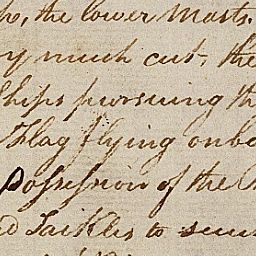 the lower Masts.
much cut, the
Ships pursuing th
Flag flying onbo
Possession of the
Tackles to secu